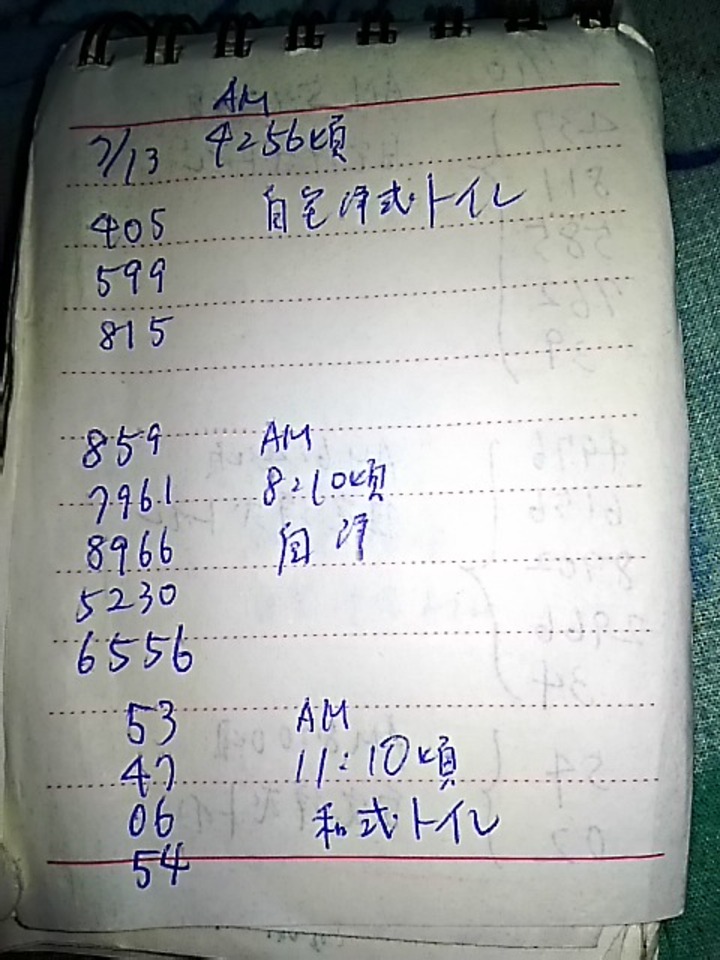 AM
7/13 4:56頃
405 自宅洋式トイレ
599
815
859 AM
7961 8:10頃
8966 自 洋
5230
6556
53 AM
47 11:10頃
06 和式トイレ
54